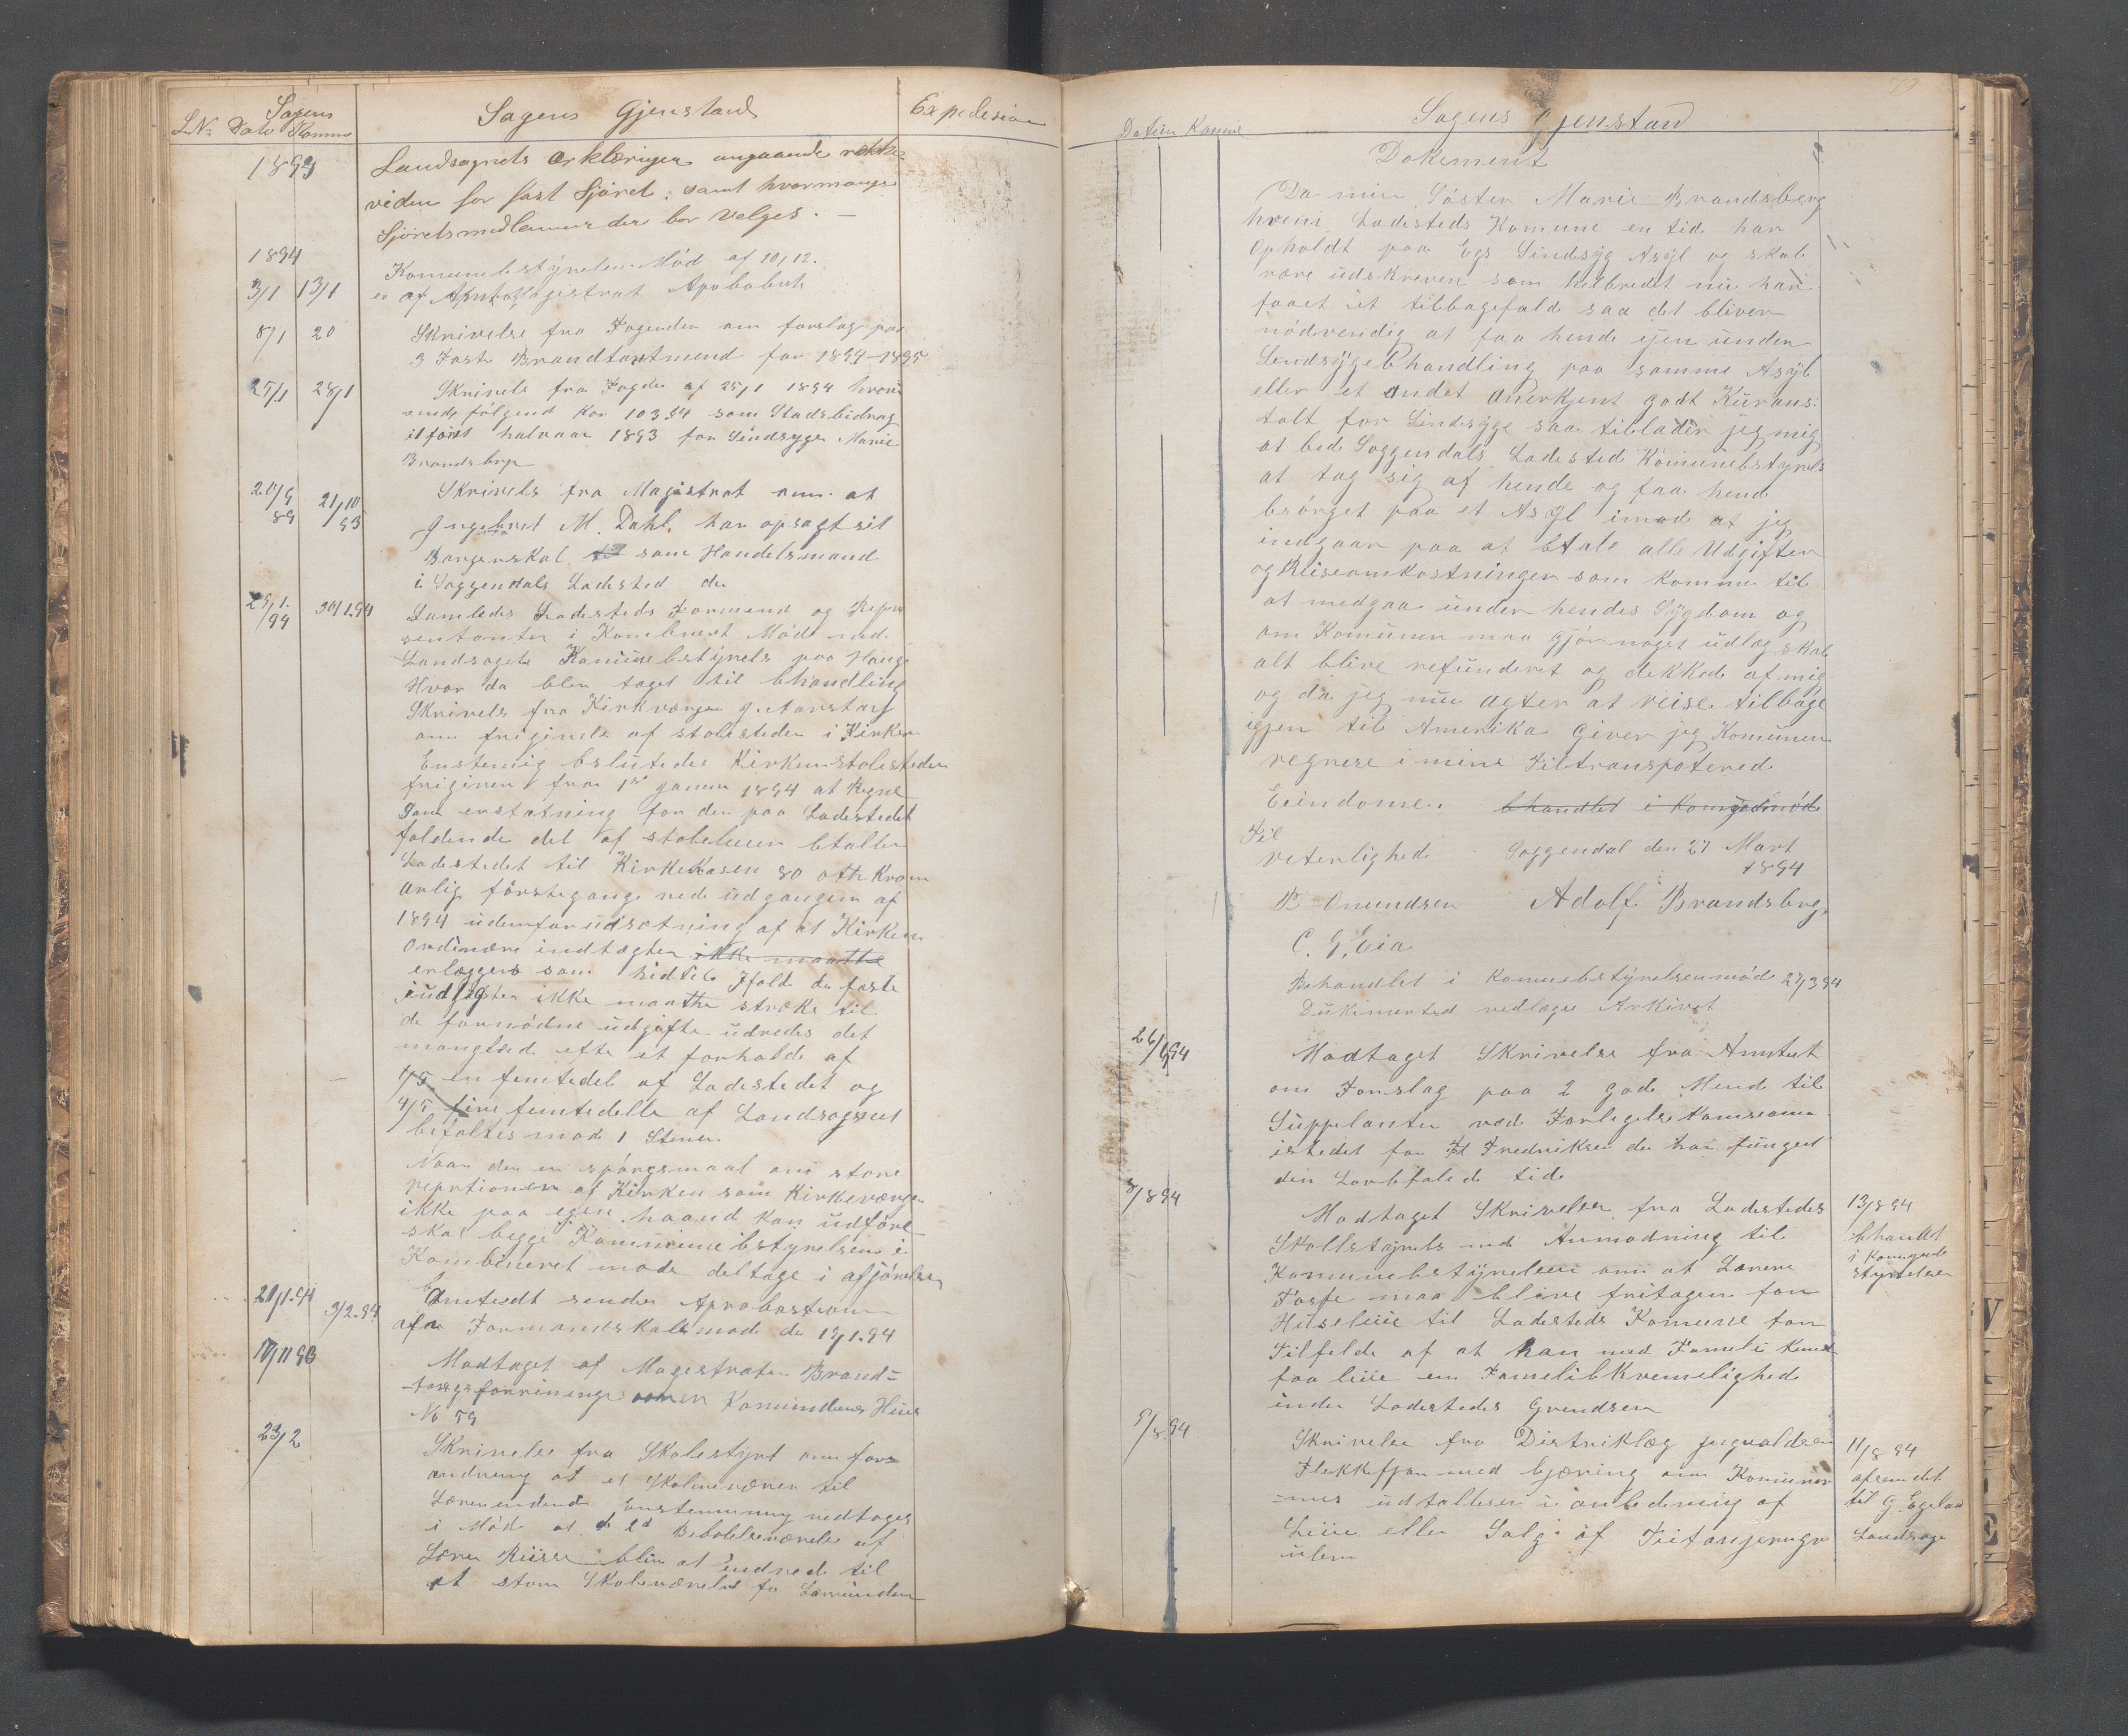 Sagens
LN. Dato Komme
Sagens Gjenstand
Expedision
1893
Landsognets Erklæringer angaaende række-
viden for fast Sjöret, samt hvormange
Sjöretsmedlemmer der bör velges. –
1894
3/1 13/1
Komunebstÿrelsen Möd af 10/12.
er af Magistrat Apobabert
8/1 20
Skrivelse fra Fogenden om forslag paa
3 Faste Brandtaxtmend for 1894–1895
25/1 28/1
Skrivels fra Fogden af 25/1 1894 hvori
meds fölgend Kor 103.94 som Stadsbidrag
i förs halvaar 1893 for Sindsyge Marie
Brandsberg
20/9 89 21/10 93
Skrivels fra Magistrat om at
Ingebret M. Dahl, har opsagt sit
Borgerskab som Handelsmand
i Soggendals Ladested
29/1. 94 30/1.94
Samledes Ladesteds Formend og Repre
sentanter i Kombinert Möde med
Landsogets Komunebstÿrels paa Hauge
Hvor da blev taget til bhandling
Skrivels fra Kirkværgen J. Aarstad
om frigivels af stolesteder i Kirken
Enstemig bslutedes Kirkenstolesteder
friginer fra 1ste januar 1894 at Regne
Som erstatning for den paa Ladestedet
faldende del af stoleleien btaller
Ladestedet til Kirkekasen 80 otti Kroner
aarlig förstegang ved udgangen af
1894 udenforudsætning af at Kirkens
Ordinære indtægter ikke maatte
erlægges som hidtil Ifald de faste
indtægter ikke maatte strække til
de fornödne udgifter udredes det
manglend efter et forhold af
1/5 en femtedel af Ladestedet og
4/5 fire femtedelle af Landsognet
befaltes mod 1 Stemme.
Naar der er spörgsmaal om störe
reprtioner af Kirken som Kirkeværgen
ikke paa egen haand kan udföre
skal begge Kommunebstyrelsen i
Kombineret möde deltage i afgjörelsen
20/1.94 3/2.94
Amtedt sender Aprobastion
afa Formandskabsmöde de 19/1.94
17/11 93
Modtaget af Magestraten Brand-
No 59
23/2
Skrivelse fra Skolestÿrt om for
andring af et Skoleværer til
Enstemmig vedtoges
i Möd at Bebolsesværelse af
Lærer Riise bliv at endred til
et störe Skoleværelse
Datum Komne
Sagens Gjenstand
Dokument
Da min Söster Marie Brandsberg
hveni Ladesteds Komune en tid har
Opholdt paa Egs Sindsÿg Asÿl og skal
være udskreven som helbredet nu har
faaet et tilbagefald saa det bliver
nödvendig at faa hende igen under
Sendsÿgebhandling paa samme Asÿl
eller et andet anerkjent godt Kurans:
talt for Sindsÿge saa tillader jeg mig
at bed Soggendals Ladested Komunebstyrels
at tag sig af hende og faa hend
bsörget paa et Asÿl imod at jeg
indgaar paa at btale alle Udgifter
og Reiseomkostninger som komme til
at medgaa under hendes Sÿgdom og
om Komunen maa gjör noget udlæg skal
alt blive refunderet og dekked af mig
og da jeg nu agter at reise tilbage
igjen til Amerika Giver jeg Komunen
regrese i mine Tiltranspotered
Eiendome. bhandlet i Komunemöd
Til
veterlighed Soggendal den 27 Mart
1894
P Omundsen Adolf Brandsberg
C. G. Eia
Behandlet i Komunebstÿrelsenmöd 27/3 94
Dukimented vedlægges Arkivet
26/6 94
Modtaget Skrivelse fra Amtet
om Forslag paa 2 gode Mend til
Suppelanter ved Forligels Komisionen
istedet for Fredriksen der har fungert
den Lovbefalede tid
8/8 94
Modtaget Skrivelse fra Ladestedes
Skollstÿrels med Anmodning til
Komunebstÿrelsen om at Lærere
Fosse maa blive fritagen for
Husleie til Ladesteds Komune for
Tilfelde af at han med Fameli kunde
faa leie en Famelibkvemelighed
inden Ladestedes Grendsen
13/8 94
bhandlt
i Komune
styrelsen
9/8.94
Skrivelse fra Distriktlæg Inguoldsen
Flekkefjor med bjæring om Komuner
=nes udtalelser i anledning af
Leie eller Salg af Titanjerngr
uben
11/8 94
afsendet
til G. Egeland
Landsogn